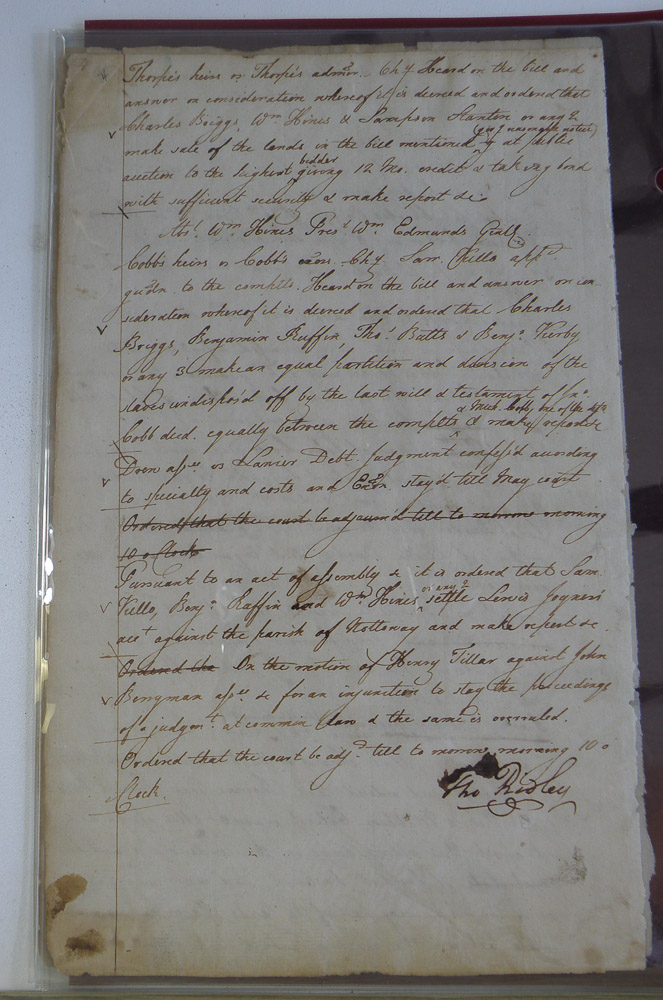 Thorpe's heirs vs Thorpe's admor. Chy Heard on the bill and
answer on consideration whereof it is decreed and ordered that
Charles Briggs, Wm Hines & Sampson Stanton or any 2
(givg reasonable notice)
make sale of the lands in the bill mentioned at public
bidder
auction to the highest giving 12 Mo. credit & taking bond
with sufficient security & make report &c
Abst. Wm Hines Prest Wm Edmunds Gent
Cobb's heirs vs Cobb's exors. Chy. Sam. Kello appd
guardn to the complts. Heard on the bill and answer on con
sideration whereof it is decreed and ordered that Charles
Briggs, Benjamin Ruffin, Thos Butts & Benja. Kirby
or any 3 make an equal partition and division of the
slaves undispos'd off by the last will & testament of Jno
& Mich. Cobb, one of the defts
Cobb decd. equally between the complts & make report &c
Doen assee vs Lanier Debt. Judgment confess'd according
to specialty and costs and Exon stay'd till May court
Ordered that the court be adjourned till to morrow morning
10 o Clock
Pursuant to an act of assembly & it is ordered that Sam
or any 2
Kello, Benja Ruffin and Wm Hines settle Lewis Joyner's
acct against the parish of Nottoway and make report &c.
Ordered the On the motion of Henry Tillar against John
Berryman assee &c for an injunction to stay the proceedings
of a judgmt. at common law & the same is overruled.
Ordered that the court be adjd. till to morrow morning 10 o
Clock.
Tho Ridley